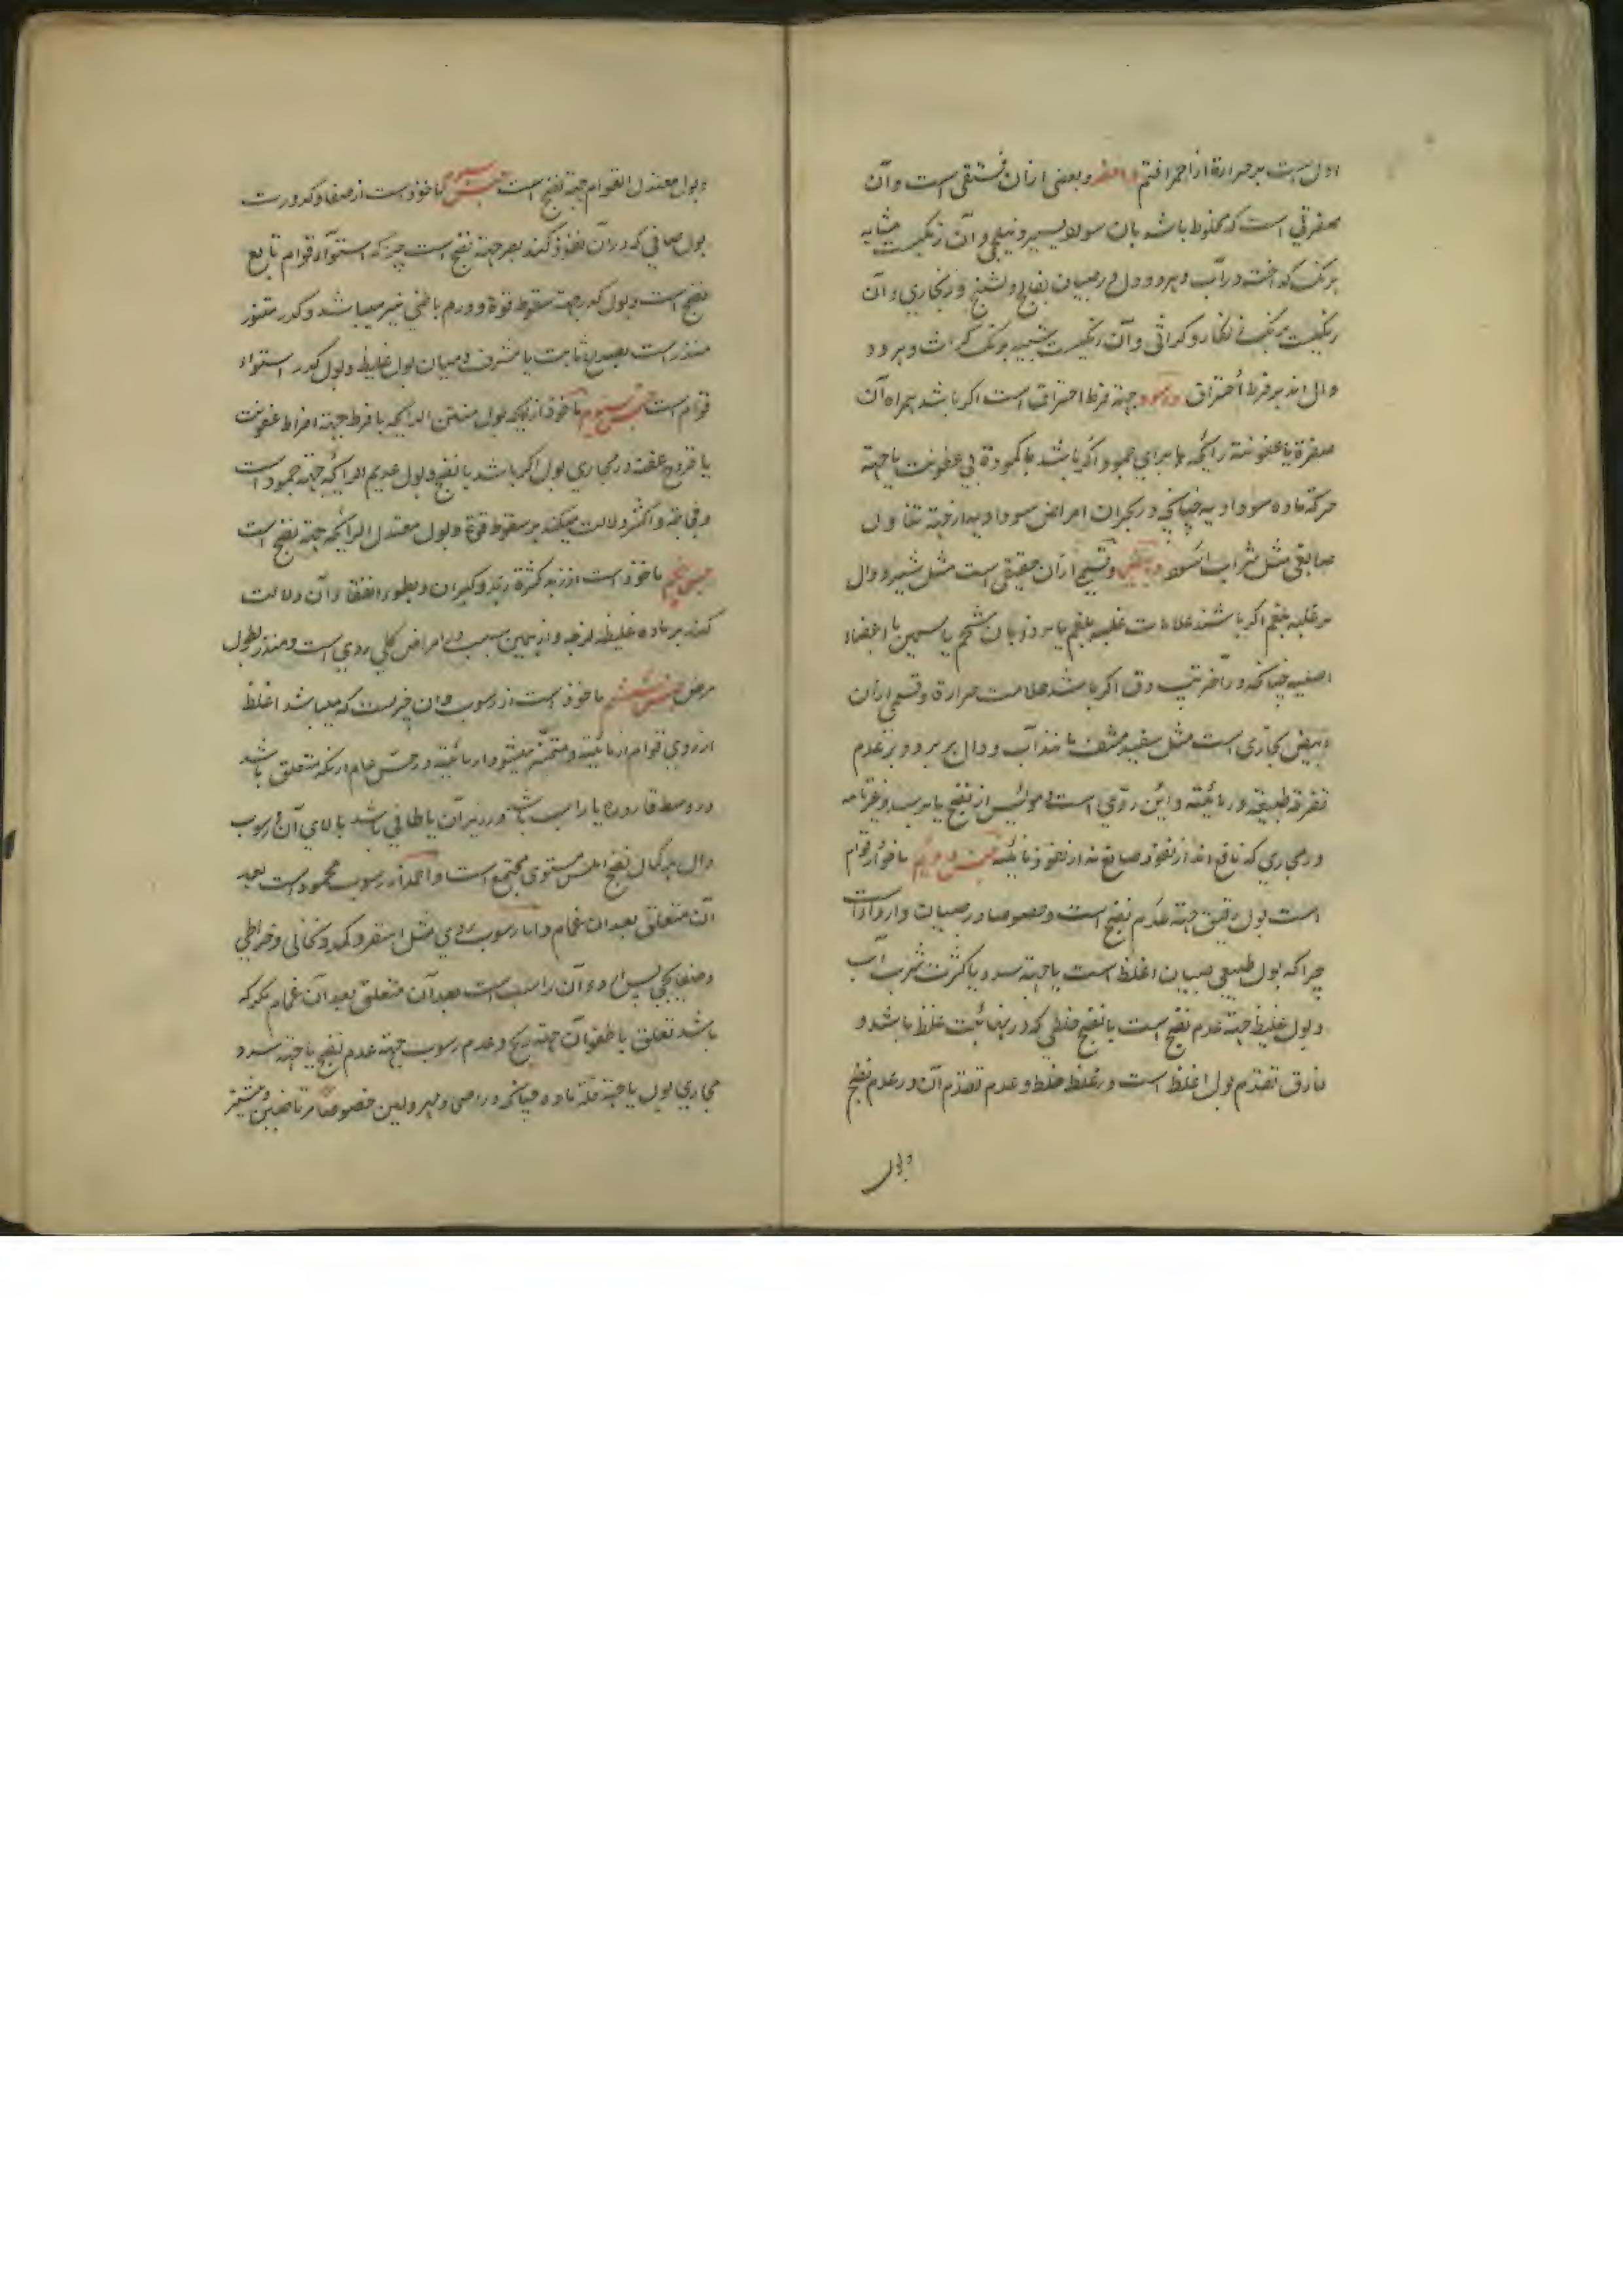 ادل است بر حرارة از احمر اقتم و اصفر و بعضی ازان فستقی است و آن
صفرتی است که مخلوط باشد بان سواد یسیر و نیلجی و آن رنگیست مشابه
برنک که اخت در آب و هر دو دال در صبیان بفالج و تشنج و زنجاری و آن
رنگیست برنک زنکار و کراثی و آن رنگیست شبیه برنک کراث و هر دو
دال اند بر فرط احتراق و اسود جهة فرط احتراق است اکر باشد همراه آن
صفرة یا عفونة رائحه یا برای جمود اکر باشد با کمودة بی عفونت یا جهة
حرکة ماده سوداویه چنانچه در بحران امراض سوداویه یا از جهة تناول
صابغی مثل شراب اسود و ابیض و قسمی ازان حقیقی است مثل شیر و دال
بر غلبه بلغم اکر باشند علامات غلبه بلغم یا بر ذوبان شحم یا سمین یا اعضاء
اصلیه چنانکه در آخر تب دق اکر باشد علامت حرارة و قسمی ازان
ابیض مجازی است مثل سفید مشف مانند آب و دال بر برد و بر عدم
تفرقه طبیعة در مائیة و این ردی است و موئس از نضج یا بر سده غیر تامه
در مجاری که مانع اند از نفوذ صابغ نه از نفوذ مائیة جنس دویم ماخوذ از قوام
است بول رقیق جهة عدم نضج است و خصوصا در صبیان و ارداءات
چرا که بول طبیعی صبیان اغلظ است یا جهة سدد یا کثرت شرب آب
و بول غلیظ جهة عدم نضج است یا نضج خلطی که در نهائیت غلظ باشد و
فارق تقدم بول اغلظ است در غلظ خلط و عدم تقدم آن در عدم نضج
وبول
وبول معتدل القوام جهة نضج است جنس سیوم ماخوذ است از صفا و کدورت
بول صافی که در آن نفوذ کند بصر جهة نضج است چرا که استواء قوام تابع
نضج است و بول کدر جهة سقوط قوة و ورم باطنی نیز میباشد و کدر متثور
منذر است بصداع ثابت یا مشرف و میان بول غلیظ و بول کدر استواء
قوام است جنس ماخوذ از رایحه بول منتن الرائحه بافراط جهة افراط عفونت
یا قروح عفنة در مجاری بول اکر باشد با نضج و بول عدیم الرائحه جهة جمود است
و فجاجة و اکثر دلالت میکند بر سقوط قوة و بول معتدل الرائحه جهة نضج است
جنس پنجم ماخوذ است از زبد کثرة زبد و کبر آن و بطوء انفقاء آن دلالت
کند بر ماده غلیظه لزجه و از همین سبب در امراض کلی ردی است و منذر بطول
مرض جنس ششم ماخوذ است از رسوب و ان چیزیست که میباشد اغلظ
از روی قوام از مائیة و متمیز میشود از مائیة در حس عام از نکه متعلق باشد
در وسط قاروره یا راسب باشد در زیر آن یا طافی باشد بالای آن و رسوب
دال بر کمال نضج املس مستوی مجتمع است و احمد از رسوب محمود راسب است بعد
آن متعلق بعد ان غمام و اما رسوب ردی مثل اصفر و کمد و نخالی و خراطی
و صفایحی پس اردء آن راسب است بعد آن متعلق بعد ان غمام مکر که
باشد تعلق یا طفو آن جهة ریح و عدم رسوب جهة عدم نضج یا جهة سدد
مجاری بول یا جهة قلة ماده چنانکه در اصحا و مهزولین خصوصا مرتاضین و مشتغز